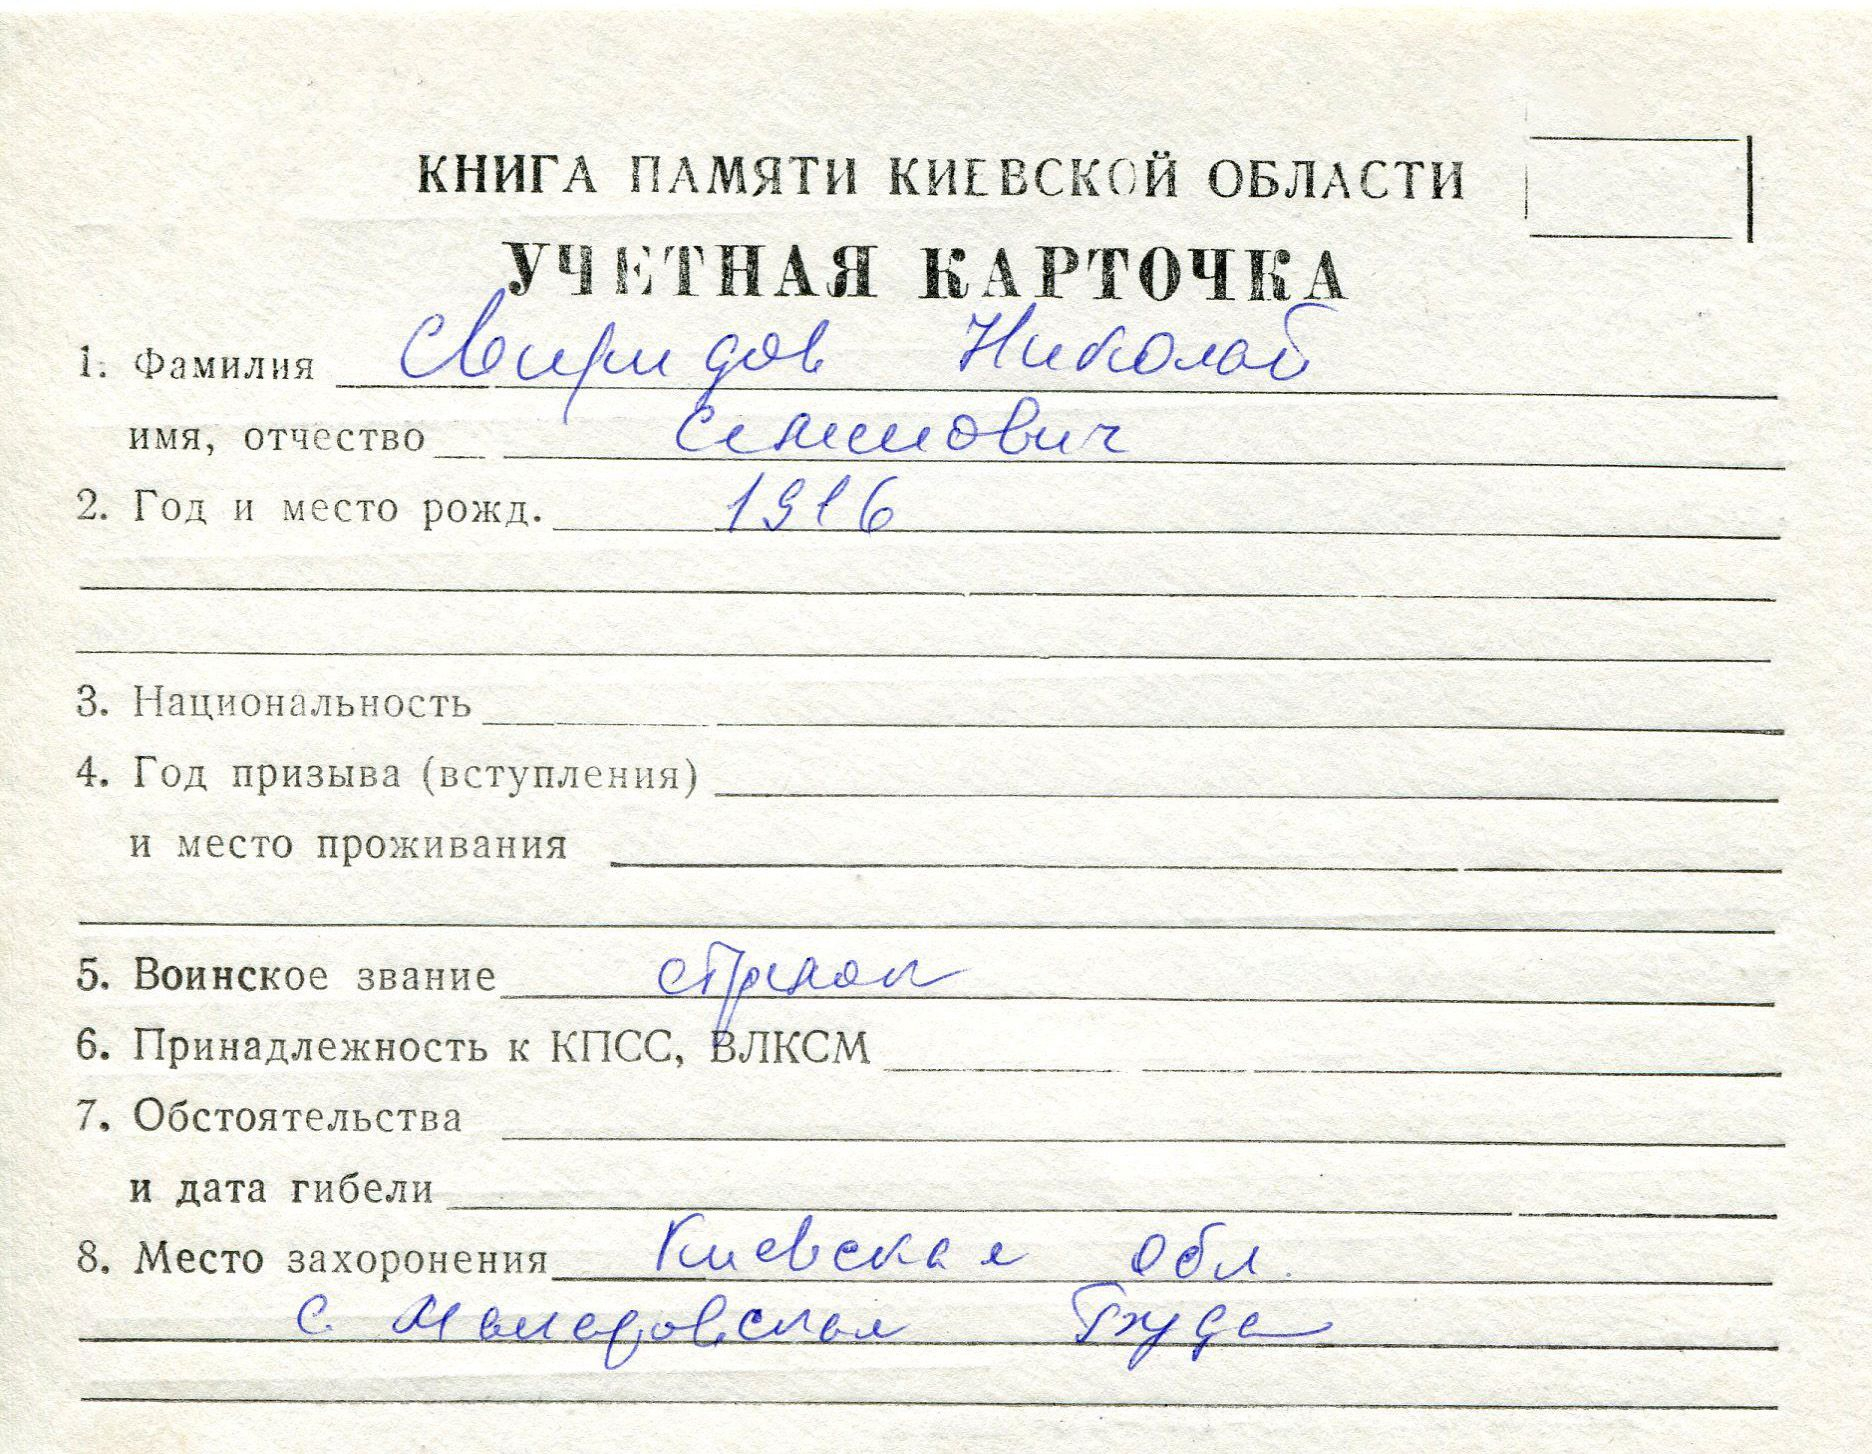 КНИГА ПАМЯТИ КИЕВСКОЙ ОБЛАСТИ
УЧЕТНАЯ КАРТОЧКА
1. Фамилия Свиридов Николай
имя, отчество Семенович
2. Год и место рожд. 1916
3. Национальность
4. Год призыва (вступления)
и место проживания
5. Воинское звание стрелок
6. Принадлежность к КПСС, ВЛКСМ
7. Обстоятельства
и дата гибели
8. Место захоронения Киевская обл.
с.